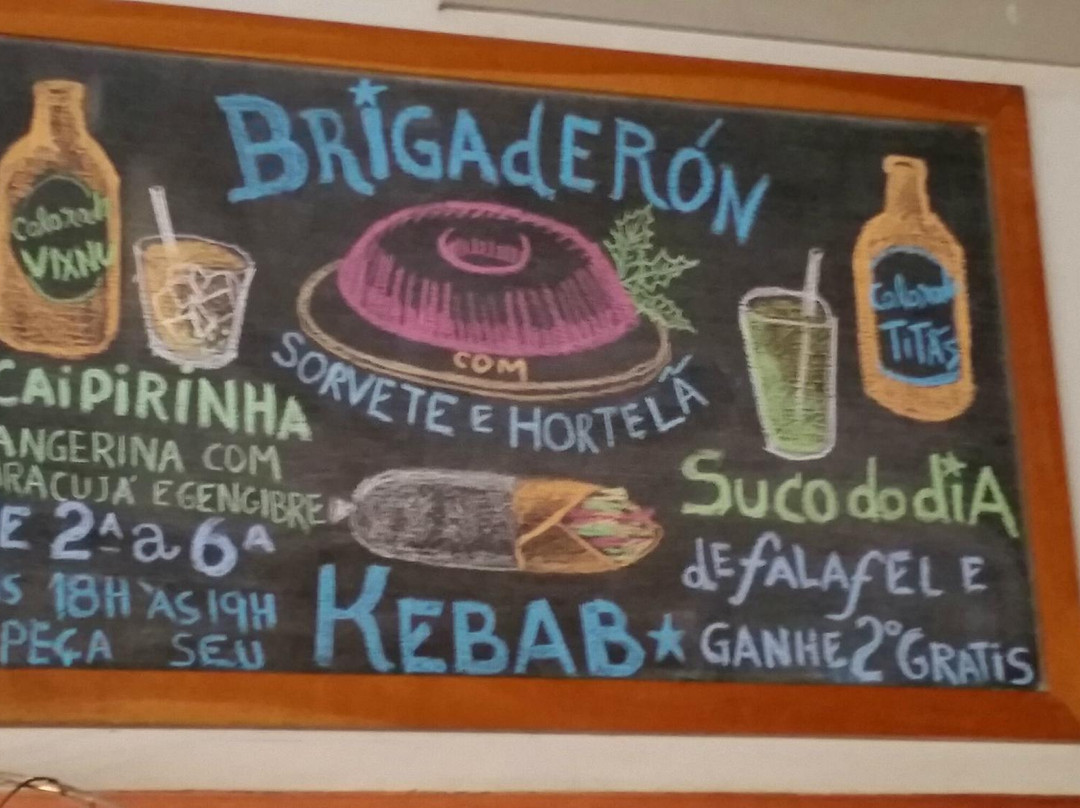 BRIGADERÓN
COM
SORVETE E HORTELÃ
Colorado
VIXNU
CAIPIRINHA
ANGERINA COM
RACUJÁ E GENGIBRE
E 2ª a 6ª
S 18H ÀS 19H
PEÇA SEU
KEBAB
Colorado
TITÃS
SUCO do diA
dE fALAfEL E
GANHE 2º GRATIS